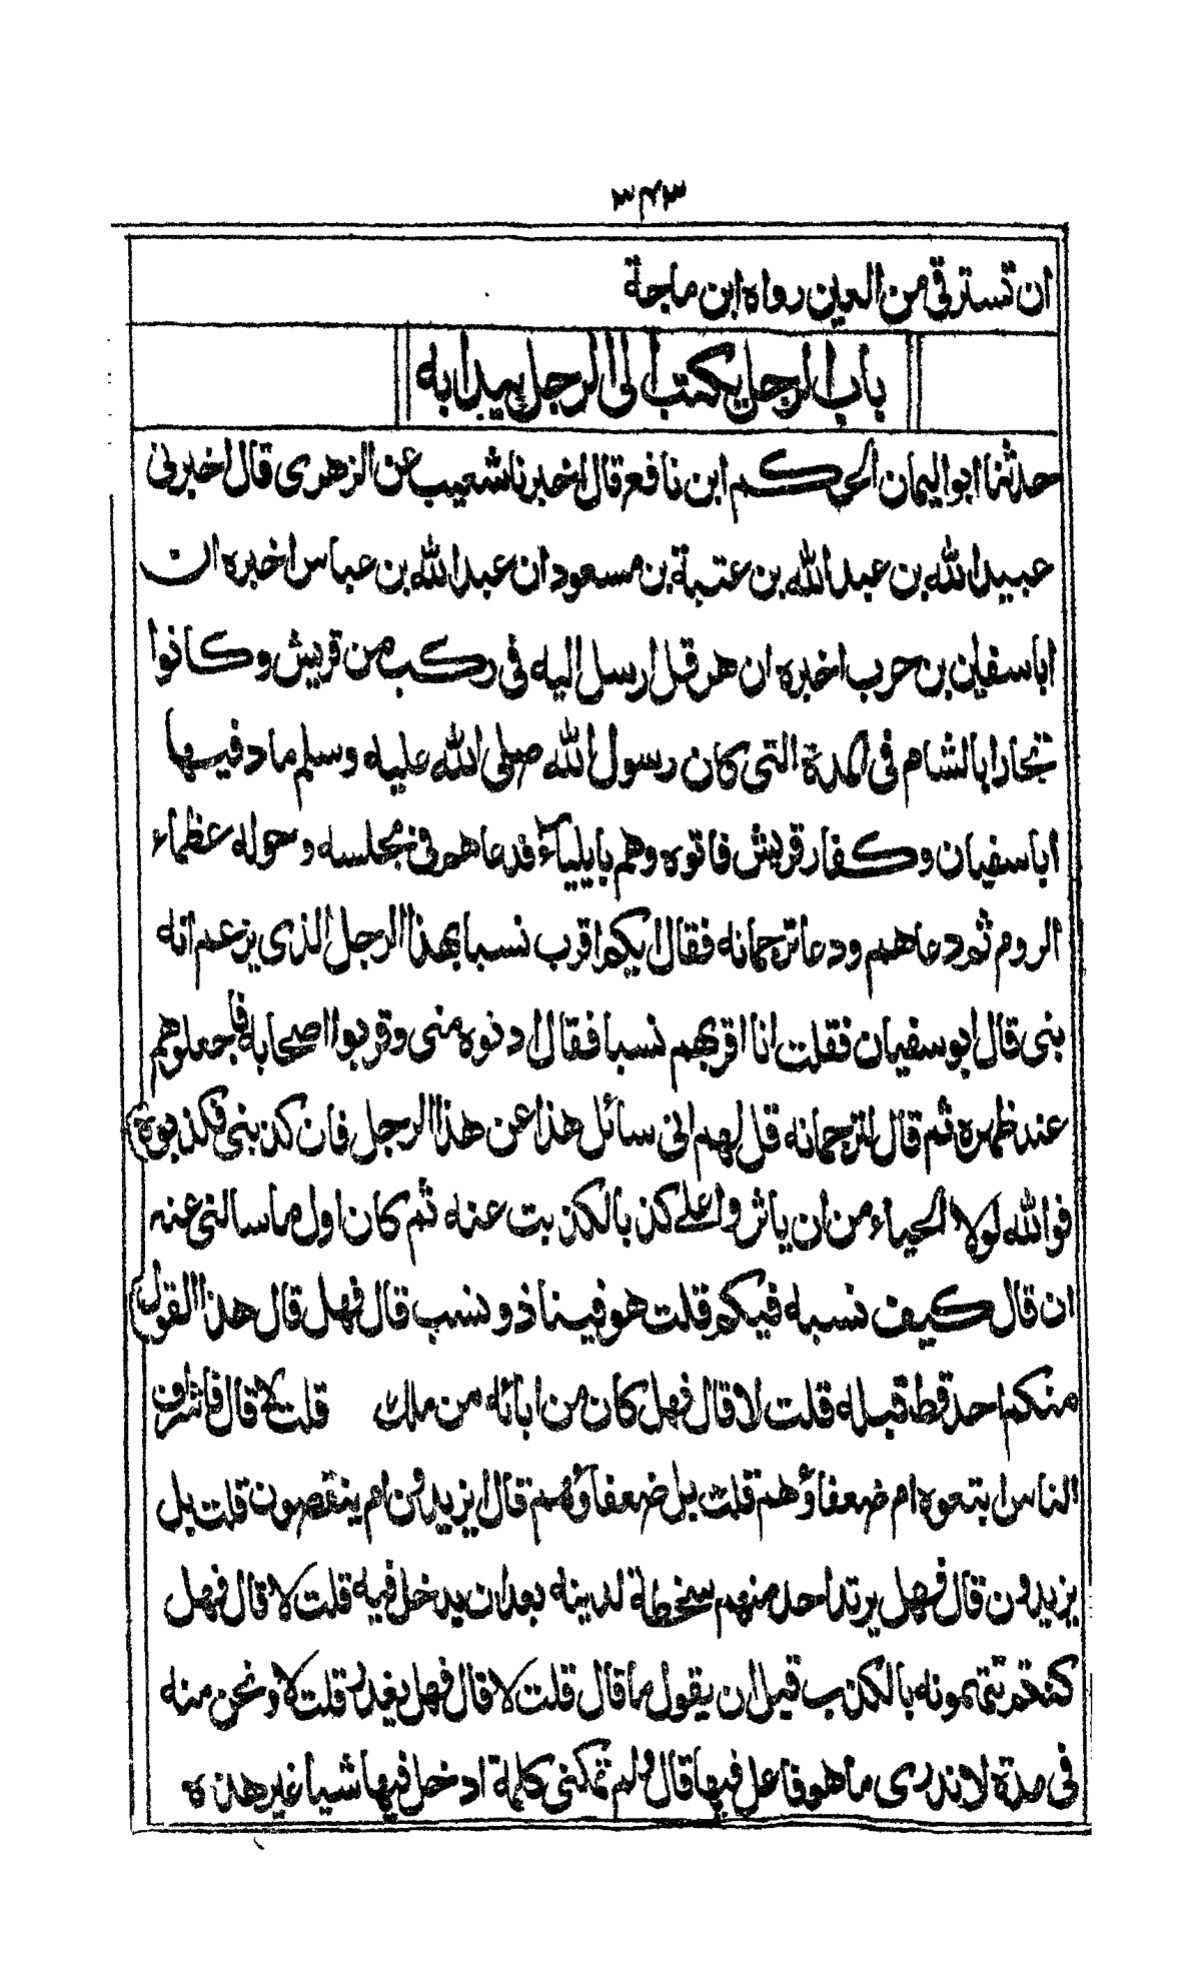 ۳۴۳
ان تسترقى من العين رواه ابن ماجة
باب الرجل يكتب الى الرجل يبدا به
حدثنا ابو اليمان الحكم ابن نافع قال اخبرنا شعيب عن الزهرى قال اخبرنى
عبيد الله بن عبد الله بن عتبة بن مسعود ان عبد الله بن عباس اخبره ان
ابا سفيان بن حرب اخبره ان هرقل ارسل اليه فى ركب من قريش وكانوا
تجارا بالشام فى المدة التى كان رسول الله صلى الله عليه وسلم ماد فيها
ابا سفيان وكفار قريش فاتوه وهم بايلياء فدعاهم فى مجلسه وحوله عظماء
الروم ثم دعاهم ودعا ترجمانه فقال ايكم اقرب نسبا بهذا الرجل الذى يزعم انه
بنى قال ابو سفيان فقلت انا اقربهم نسبا فقال ادنوه منى وقربوا اصحابه فاجعلوهم
عند ظهره ثم قال لترجمانه قل لهم انى سائل هذا عن هذا الرجل فان كذبنى فكذبوه
فوالله لولا الحياء من ان ياثروا على كذبا لكذبت عنه ثم كان اول ما سالنى عنه
ان قال كيف نسبه فيكم قلت هو فينا ذو نسب قال فهل قال هذا القول
منكم احد قط قبله قلت لا قال فهل كان من ابائه من ملك قلت لا قال فاشراف
الناس ابتعوه ام ضعفاؤهم قلت بل ضعفاؤهم قال ايزيدون ام ينقصون قلت بل
يزيدون قال فهل يرتد احد منهم سخطة لدينه بعد ان يدخل فيه قلت لا قال فهل
كنتم تتهمونه بالكذب قبل ان يقول ما قال قلت لا قال فهل يغدر قلت لا ونحن منه
فى مدة لا ندرى ما هو فاعل فيها قال ولم تمكنى كلمة ادخل فيها شيا غير هذه